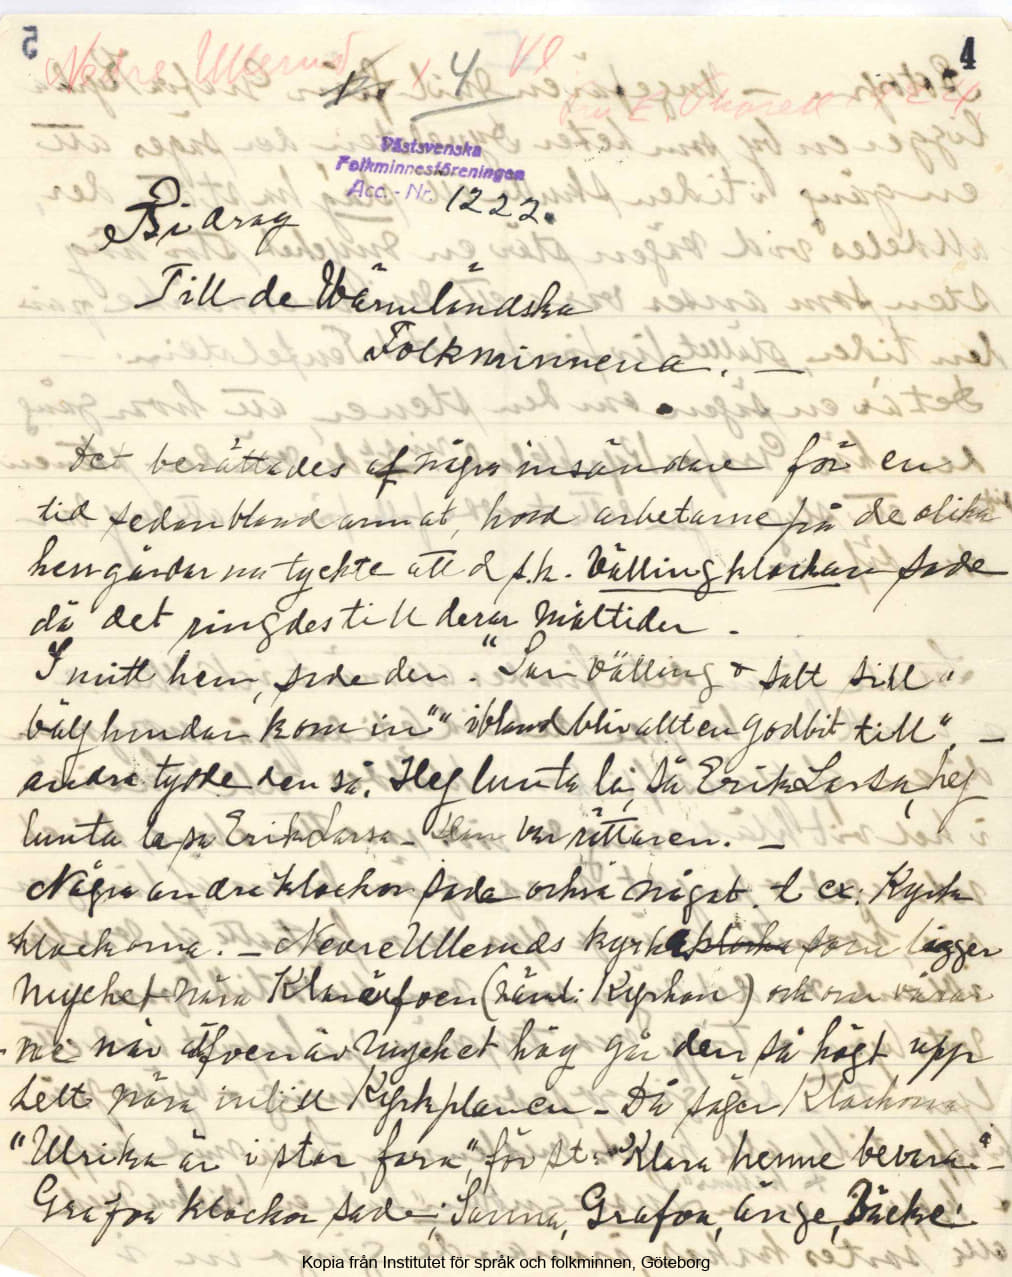 5
4
Nedre Ullerud 4 VI
Västsvenska
Folkminnesföreningen
Acc.-Nr. 1222.
Bidrag
Till de Wärmländska
Folkminnena. —
Det berättades af några insändare för en
tid sedan bland annat, hvad arbetarne på de olika
herrgårdarna tyckte att d s.k. Vällingklockan sade
då det ringdes till deras måltider.
I mitt hem, sade den. "Sur välling & salt sill"
bälghundar kom in"" ibland blir allt en godbit till". —
andra tydde den så. Hej lunta la, så Erik Larsa, hej
lunta la sa Erik Larsa — Han var rättaren. —
Några andra klockor sade också något. t ex: Kyrk
klockorna. — Nedre Ulleruds kyrka som ligger
mycket nära Klarelfven (nämli Kyrkan) och om vårar
ne när elfven är mycket hög går den så högt upp
tätt nära intill Kyrkplanen — Då säger klockorna
"Ulrika är i stor fara", för St: "Klara henne bevara" —
Grafva klockor sade; Sanna, Grafva, änge, Bäcke:
Kopia från Institutet för språk och folkminnen, Göteborg